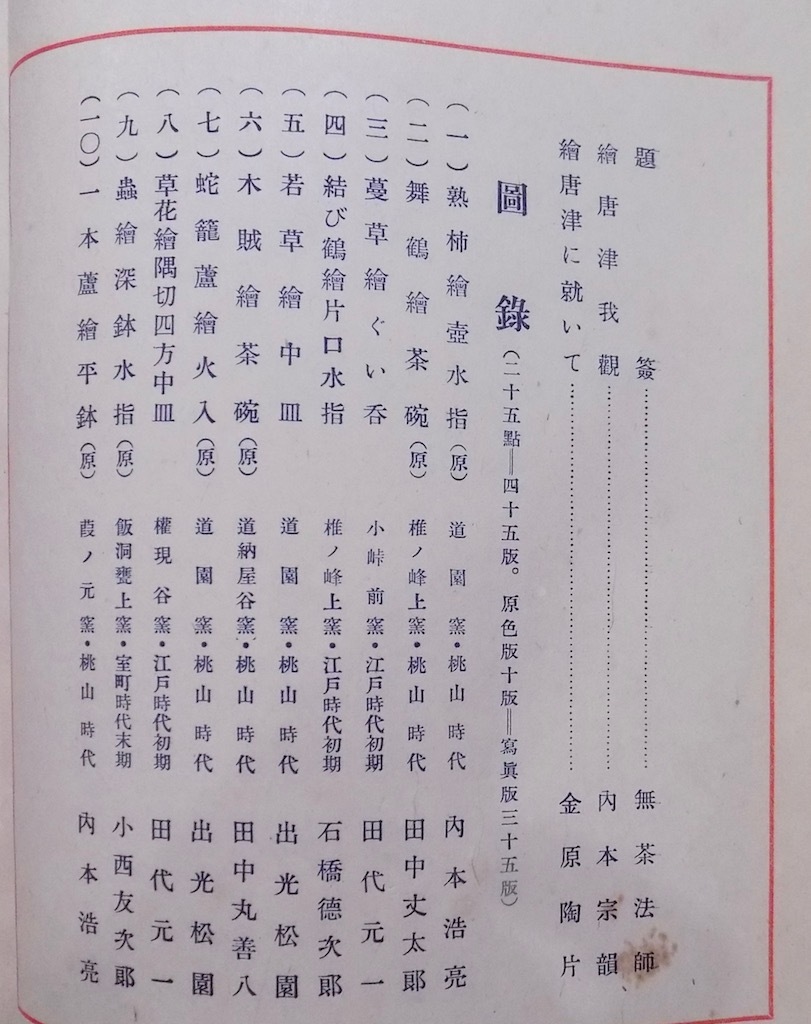 題簽………無茶法師
繪唐津我觀………內本宗韻
繪唐津に就いて………金原陶片
圖錄(二十五點＝四十五版。原色版十版＝寫眞版三十五版)
(一)熟柿繪壺水指(原) 道園窯・桃山時代 內本浩亮
(二)舞鶴繪茶碗(原) 椎ノ峰上窯・桃山時代 田中丈太郞
(三)蔓草繪ぐい呑 小峠前窯・江戶時代初期 田代元一
(四)結び鶴繪片口水指 椎ノ峰上窯・江戶時代初期 石橋德次郞
(五)若草繪中皿 道園窯・桃山時代 出光松園
(六)木賊繪茶碗(原) 道納屋谷窯・桃山時代 田中丸善八
(七)蛇籠蘆繪火入(原) 道園窯・桃山時代 出光松園
(八)草花繪隅切四方中皿 權現谷窯・江戶時代初期 田代元一
(九)蟲繪深鉢水指(原) 飯洞甕上窯・室町時代末期 小西友次郞
(一〇)一本蘆繪平鉢(原) 葭ノ元窯・桃山時代 內本浩亮